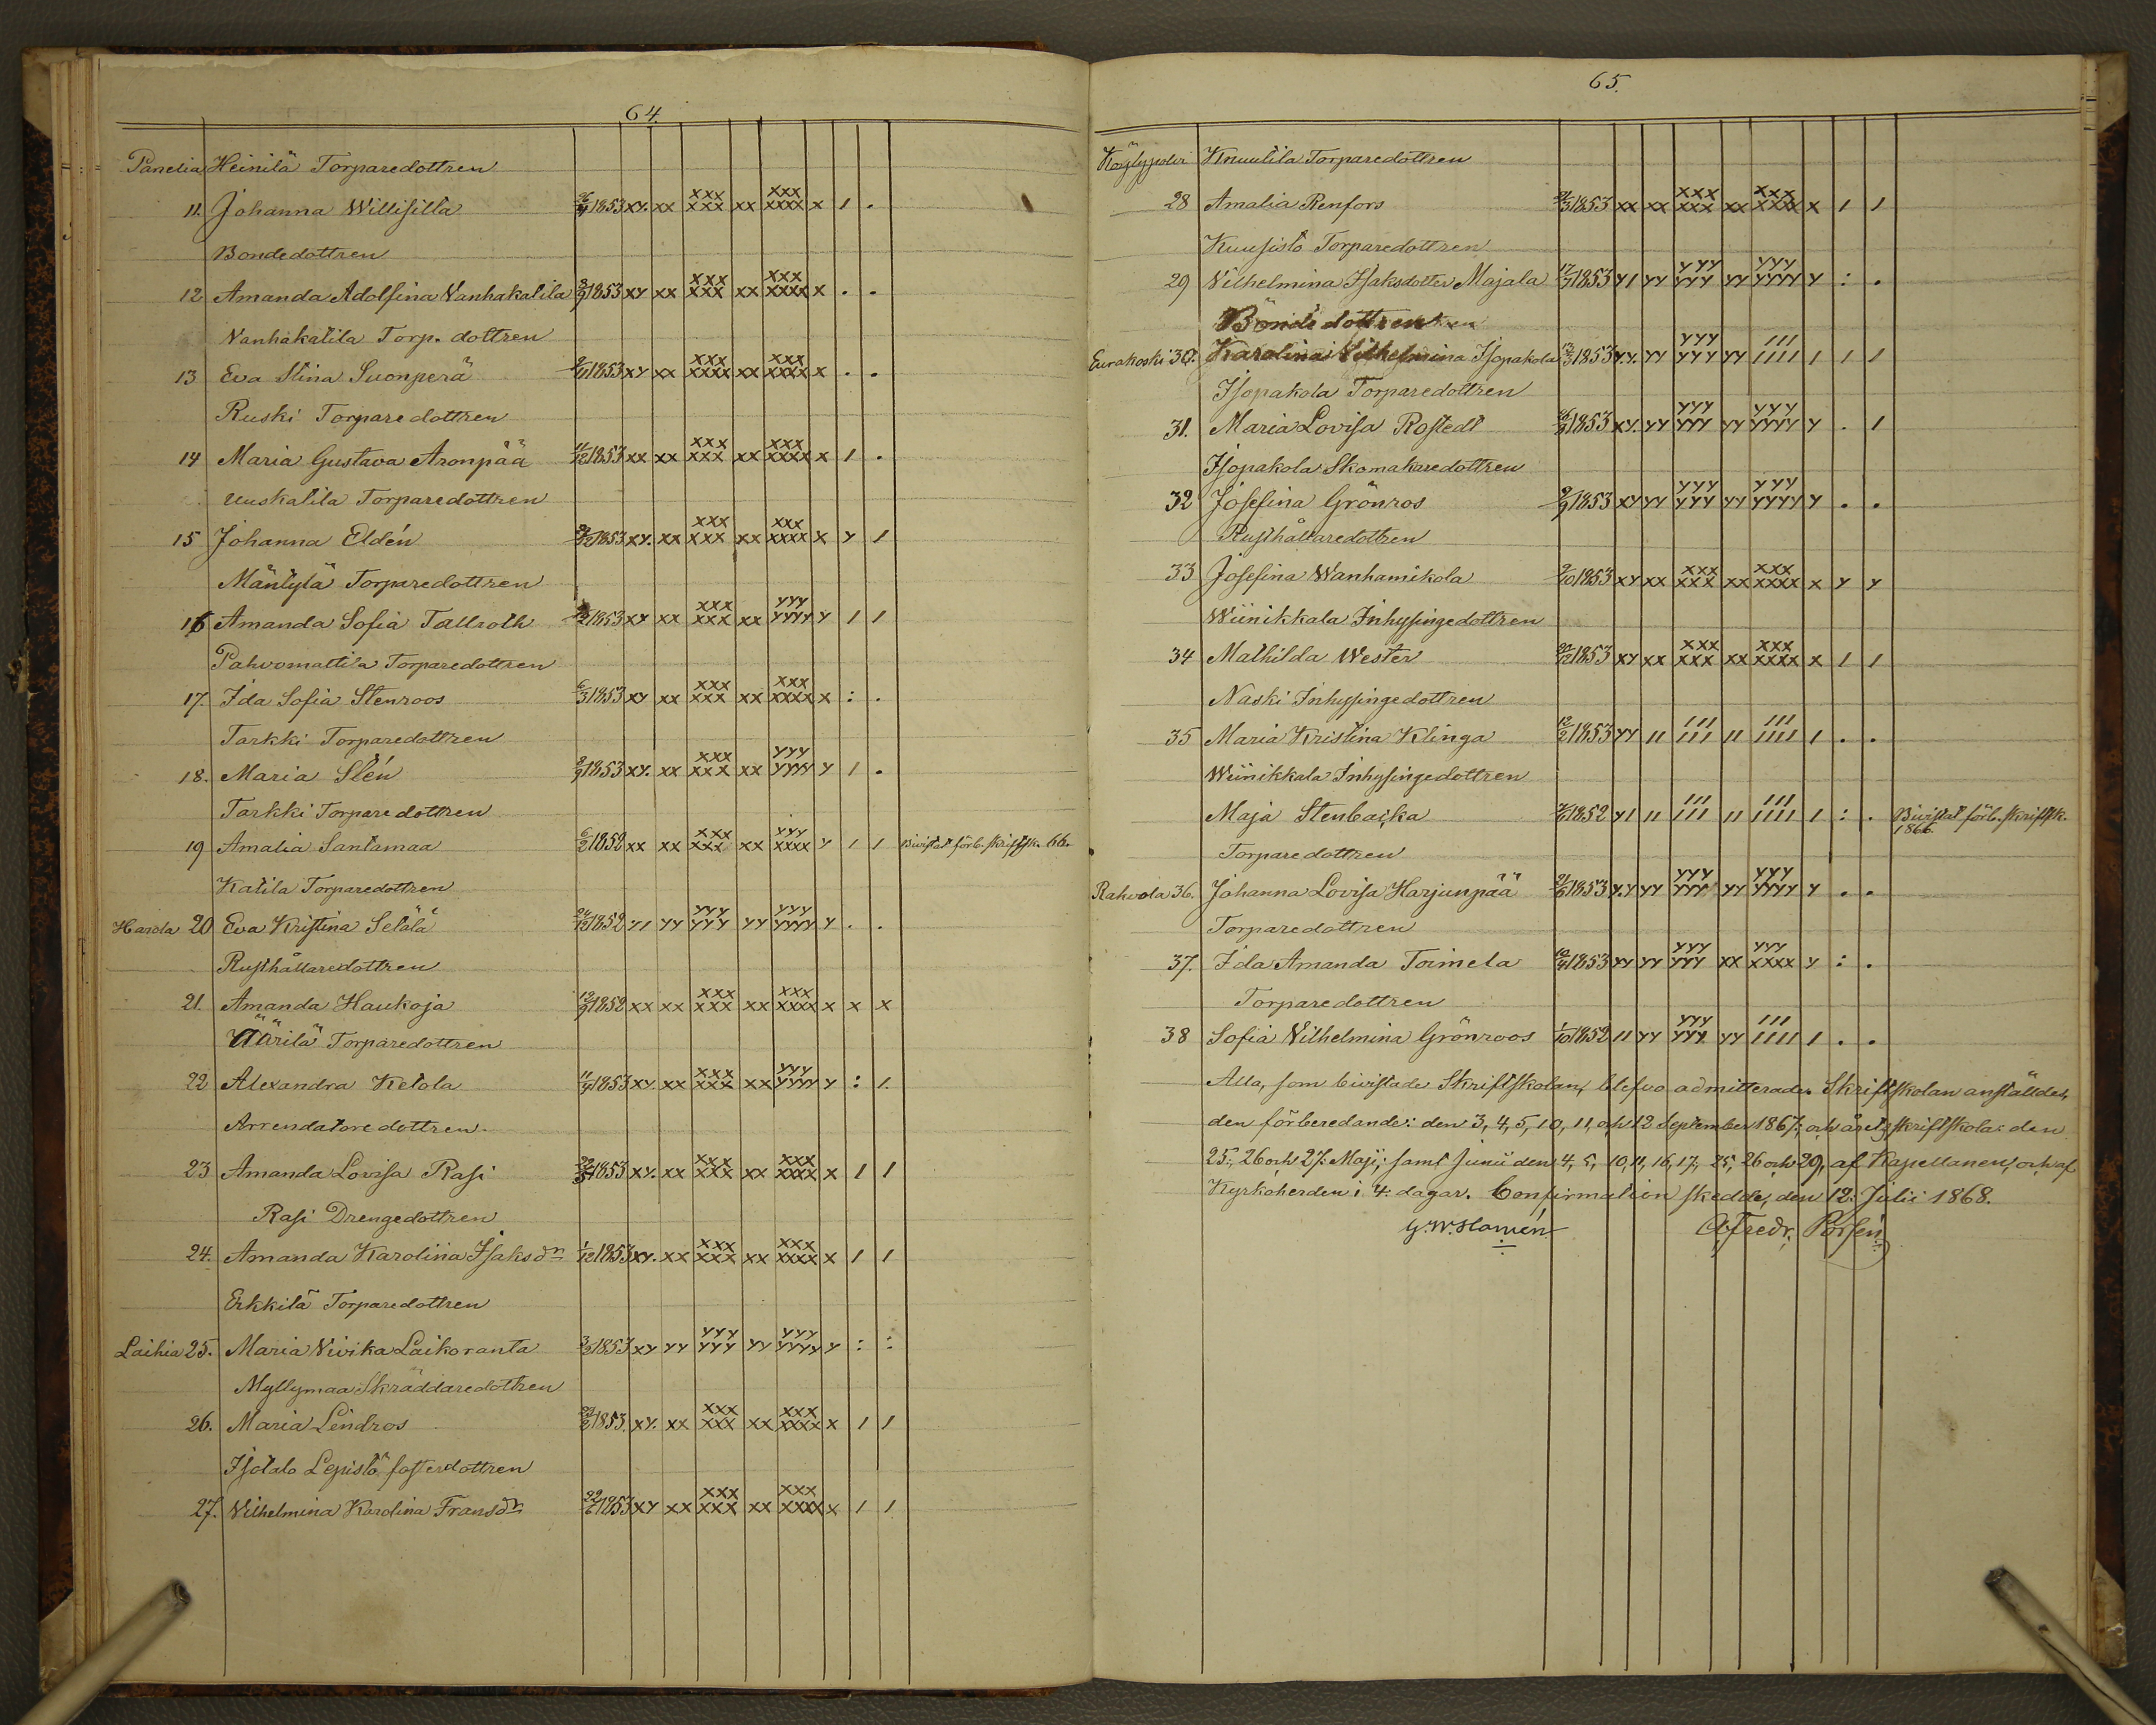 64.
Panelia Heinilä Torparedottren
11. Johanna Willisilla 26/9 1853 xy. xx xxx xxx xx xxx xxxx x 1 .
Bondedottren
12 Amanda Adolfina Vanhakatila 2/9 1853 xy xx xxx xxx xx xxx xxxx x . .
Vanhakatila Torp. dottren
13 Eva Stina Suonperä 1853 xy xx xxx xxxx xx xxx xxxx x . .
Ruski Torparedottren
14 Maria Gustava Aronpää 11/12 1853 xx xx xxx xxx xx xxx xxxx x 1 .
Uuskatila Torparedottren
15 Johanna Eldén 1853 xy. xx xxx xxx xx xxx xxxx x y 1
Mäntylä Torparedottren
16 Amanda Sofia Tallroth 1853 xy xx xxx xxx xx yyy yyyy y 1 1
Pahvomattila Torparedottren
17. Ida Sofia Stenroos 6/3 1853 xy xx xxx xxx xx xxx xxxx x : .
Tarkki Torparedottren
18. Maria Stén 8/9 1853 xy. xx xxx xxx xx yyy yyyy y 1 .
Tarkki Torparedottren
19 Amalia Santamaa 6/2 1852 xx xx xxx xxx xx yyy xxxx y 1 1 Bivistat förb. skriftsk. 66.
Katila Torparedottren
Harola 20 Eva Kristina Selälä 24/12 1852 y1 yy yyy yyy yy yyy yyyy y . .
Rusthållaredottren
21. Amanda Haukoja 19/9 1852 xx xx xxx xxx xx xxx xxxx x x x
Väärilä Torparedottren
22 Alexandra Ketola 11/9 1853 xy. xx xxx xxx xx yyy yyyy y : 1.
Arrendatoredottren.
23 Amanda Lovisa Rasi 22/5 1853 xy. xx xxx xxx xx xxx xxxx x 1 1
Rasi Drengedottren
24. Amanda Karolina Isaksdr 1/12 1853 xy. xx xxx xxx xx xxx xxxx x 1 1
Erkkilä Torparedottren
Laihia 25. Maria Vivika Laikoranta 3/2 1853 xy yy yyy yyy yy yyy yyyy y : :
Myllymaa Skräddaredottren
26. Maria Lindros 22/2 1853. xy. xx xxx xxx xx xxx xxxx x 1 1
Isotalo Lepistö fosterdottren
27. Vilhelmina Karolina Fransdr 22/6 1853 xy xx xxx xxx xx xxx xxxx x 1 1
65.
Köylypolvi Knuutila Torparedottren
28 Amalia Renfors 21/3 1853 xx xx xxx xxx xx xxx xxxx x 1 1
Kuusisto Torparedottren
29 Vilhelmina Isaksdotter Majala 17/7 1853 y1 yy yyy yyy yy yyy yyyy y : .
Bondedottren
Eurakoski 30. Karolina Vilhelmina Isopakola 13/3 1853 yy. yy yyy yyy yy 111 1111 1 1 1
Isopakola Torparedottren
31. Maria Lovisa Rostedt 1853 xy. yy yyy yyy yy yyy yyyy y . 1
Isopakola Skomakaredottren
32 Josefina Grönros 9/9 1853 xy yy yyy yyy yy yyy yyyy y . .
Rusthållaredottren
33 Josefina Wanhamikola 2/10 1853 xy xx xxx xxx xx xxx xxxx x y y
Wiinikkala Inhysingedottren
34 Mathilda Wester 22/12 1853 xy xx xxx xxx xx xxx xxxx x 1 1
Naski Inhysingedottren
35 Maria Kristina Klinga 12/2 1853 yy 11 111 111 11 111 1111 1 . .
Wiinikkala Inhysingedottren
Maja Stenbacka 1852 y1 11 111 111 11 111 1111 1 : . Bivistat förb. skriftsk. 1866.
Torparedottren
Rahvola 36. Johanna Lovisa Harjunpää 21/6 1853 y.y yy yyy yyy yy yyy yyyy y . .
Torparedottren
37. Ida Amanda Toimela 1853 yy yy yyy yyy xx yyy xxxx y : .
Torparedottren
38 Sofia Vilhelmina Grönroos 1/10 1852 11 yy yyy yyy yy 111 1111 1 . .
Alla, som bivistade Skriftskolan, blefvo admitterade. Skriftskolan anställdes,
den förberedande: den 3, 4, 5, 10, 11, och 12 September 1867, och årets skriftskola: den
25., 26 och 27. Maji, samt Junii den 4, 5, 10, 11, 16, 17, 25, 26 och 29, af Kapellanen, och af
Kyrkoherden i 4. dagar. Confirmation skedde, den 12. Julii 1868.
G. W. Hamén Alfredr. Porsén